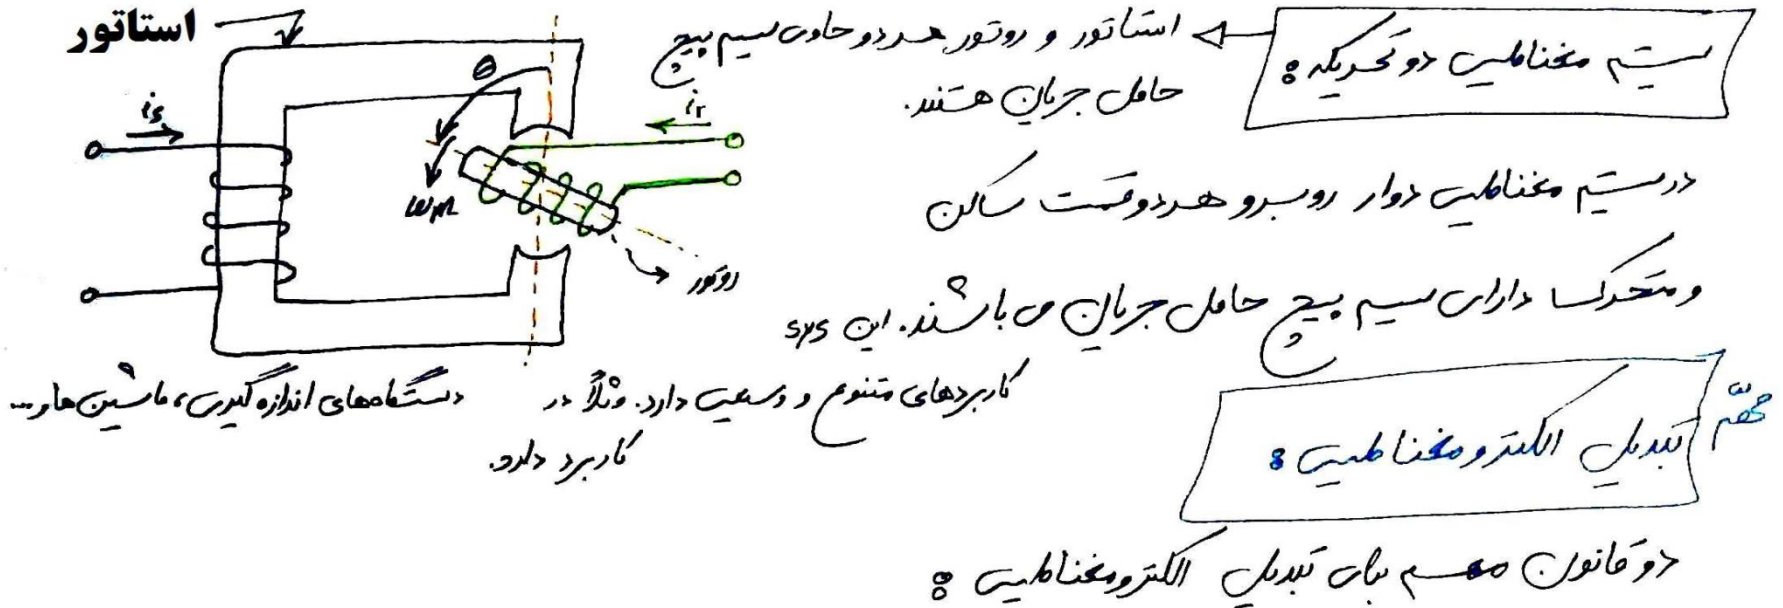 سیستم مغناطیسی دو تحریکه :
استاتور و روتور هر دو حاوی سیم پیچ
حامل جریان هستند.
استاتور
θ
is
ir
ωm
روتور
در سیستم مغناطیسی دوار روبرو هر دو قسمت ساکن
و متحرک دارای سیم پیچ حامل جریان می باشند. این sys
کاربردهای متنوع و وسیعی دارد. مثلاً در دستگاه‌های اندازه گیری، ماشین ها و ...
کاربرد دارد.
مهم
تبدیل الکترومغناطیسی :
دو قانون مهم برای تبدیل الکترومغناطیسی :